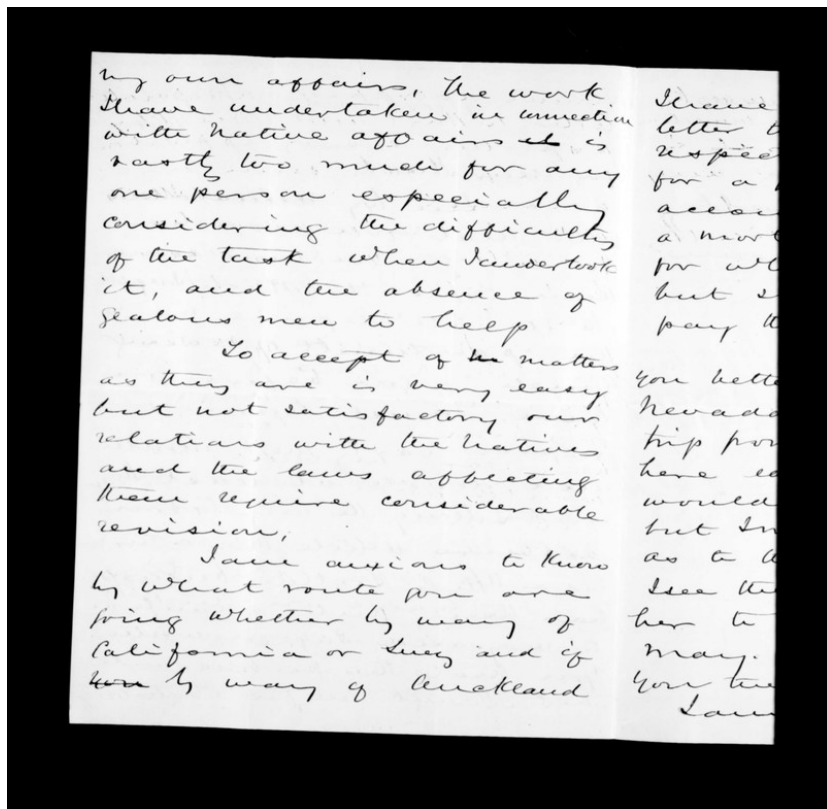 my own affairs, the work
I have undertaken in connection
with Native affairs is
vastly too much for any
one person especially
considering the difficulty
of the task when I undertook
it, and the absence of
zealous men to help
To accept of matters
as they are is very easy
but not satisfactory our
relations with the Natives
and the laws affecting
them require considerable
revision,
I am anxious to know
by what route you are
going whether by way of
California or Suez and if
you by way of Auckland
I have
letter
respec
for a
accou
a mort
for wh
but
pay th
you bette
Nevada
trip fro
here
would
but
as to th
I see the
her to
may.
you the
I am